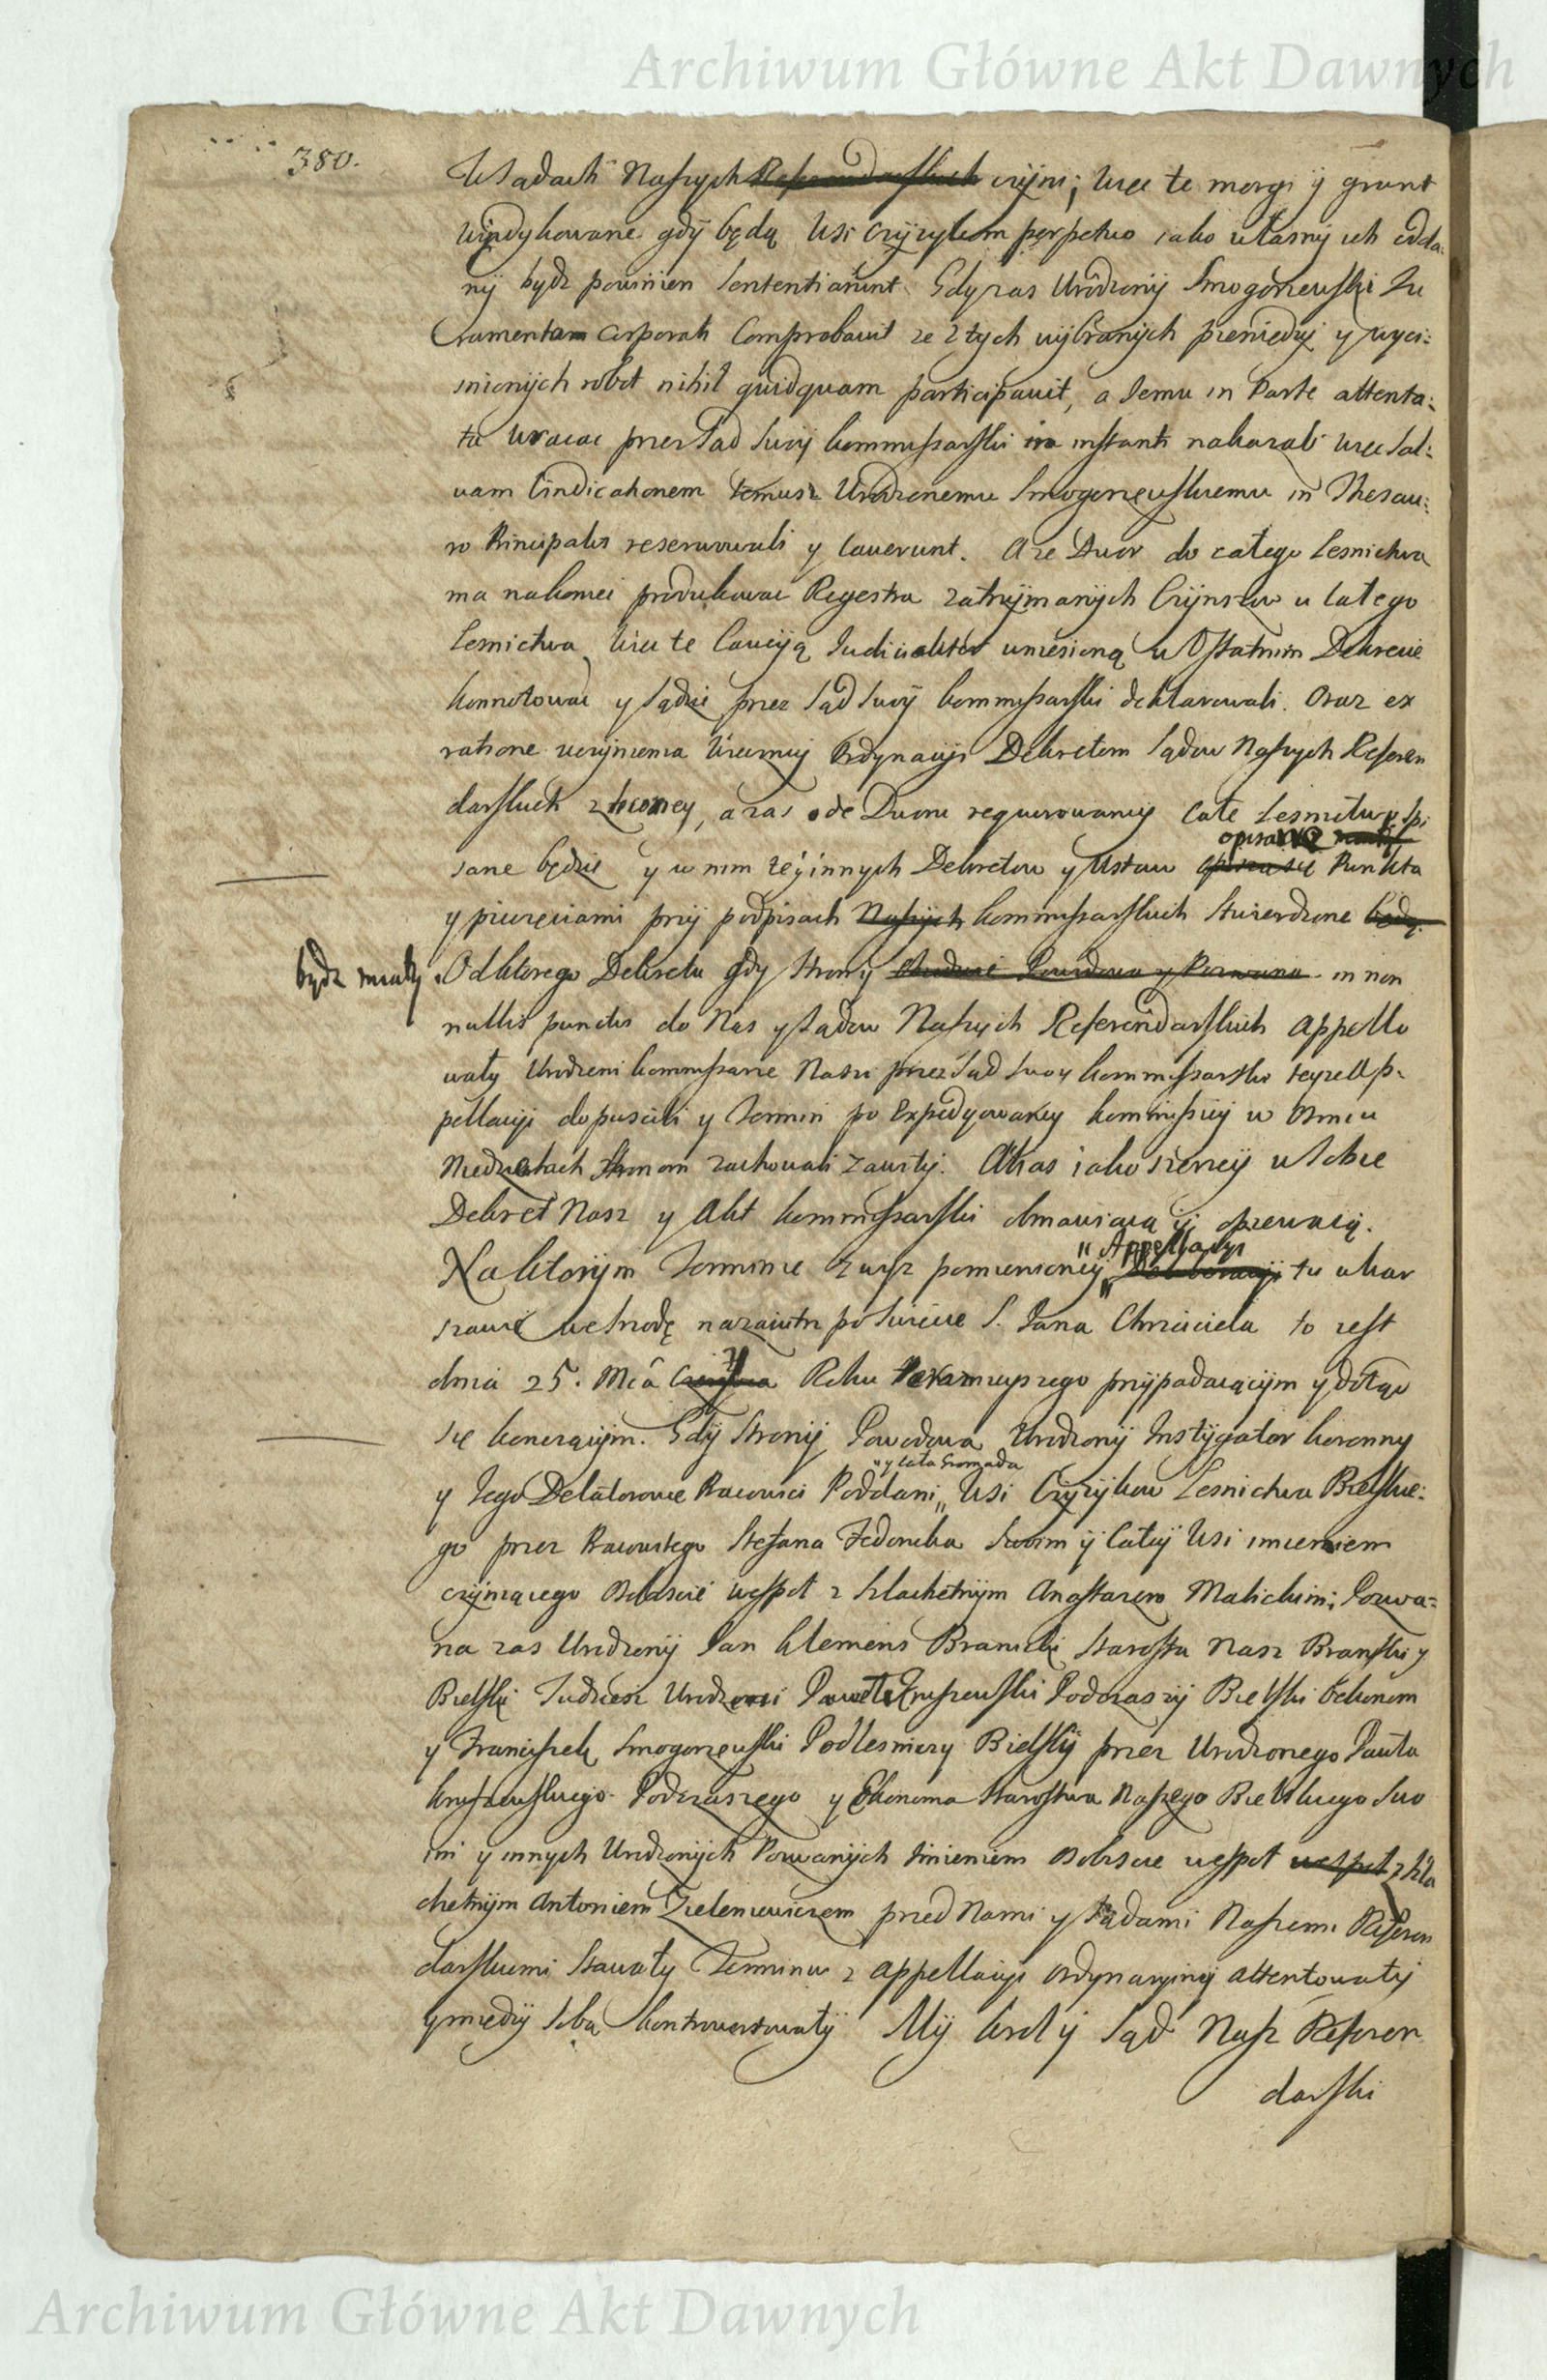 Archiwum Główne Akt Dawnych
380.
W sądach Naszych Referendarskich czyni; więc te morgi y grunt
windykowane gdy będą Wsi Czyzykom perpetuo iako własny ich odda:
ny bydz powinien sententiarunt. Gdy zas Urodzony Smogorzewski Iu
ramentum corporali comprobavit ze z tych wybranych pieniędzy y wyci:
snionych robot nihil quidquam participavit, a Iemu in Parte attenta:
ta wracac przez Sąd swoy kommissarski in instanti nakazali więc Sal:
vam vindicationem temusz Urodzonemu Smogorzewskiemu in Thesau:
ro Principalis reserwowali y caverunt. A ze Dwor do całego Lesnictwa
ma nakoniec produkować Regestra zatrzymanych Czynszow u całego
Lesnictwa, więc te Caucyą Iudicialiter uniesioną w Ostatnim Dekrecie
konnotować y sądzić przez Sąd swoy kommissarski deklarowali. Oraz ex
ratione uczynienia Wieczney Ordynacyi Dekretem Sądow Naszych Referen
darskich zleconey, a zas ode Dworu requirowaney całe Lesnictwo spi
opisane miały
sane będzie y w nim te y innych Dekretow y Ustaw opisane Punkta
y pieczęciami przy podpisach Naszych kommissarskich stwierdzone będą.
bydz miały. Od ktorego Dekretu gdy Strony Powodowa y Pozwana in non
nullis punctis do Nas y Sądow Naszych Referendarskich appello
wały Urodzeni kommissarze Nasi przez Sąd swoy kommissarski teyze Ap:
pellacyi dopuscili y Termin po Expedyowaney kommissyi w Osmiu
Niedzielach Stronom zachowali zawity. Aktas iako szerzey w sobie
Dekret Nasz y Akt kommissarski obmawiaią y opiewaią.
" Appellacyi
Na ktorym Terminie zwysz pomienioney " tu w War
szawie we Srodę nazaiutrz po Swięcie S. Iana Chrzciciela to iest
dnia 25. Mca Czerwca Roku teraznieyszego przypadaiącym y dotąd
się konczącym. Gdy Strony Powodowa Urodzony Instygator koronny
" y cała Gromada
y Iego Delatorowie Pracowici Poddani " Wsi Czyzykow Lesnictwa Bielskie:
go przez Pracowitego Stefana Fedoruka swoim y całey Wsi imieniem
czyniącego Osobiscie wespoł z Szlachetnym Anastazem Malickim; Pozwa:
na zas Urodzony Jan Klemens Branicki Starosta Nasz Branski y
Bielski Tudziesz Urodzeni Paweł Kruszewski Podczaszy Bielski Ekonom
y Franciszek Smogorzewski Podlesniczy Bielski przez Urodzonego Pawła
Kruszewskiego Podczaszego y Ekonoma Starostwa Naszego Bielskiego swo
im y innych Urodzonych Pozwanych Imieniem Osobiscie wespoł wespoł z Szla
chetnym Antoniem Zieleniewiczem przed Nami y Sądami Naszemi Referen
darskiemi stawały Terminu z appellacyi ordynaryiney attentowały
y między sobą kontrowertowały My Krol y Sąd Nasz Referen
darski
Archiwum Główne Akt Dawnych